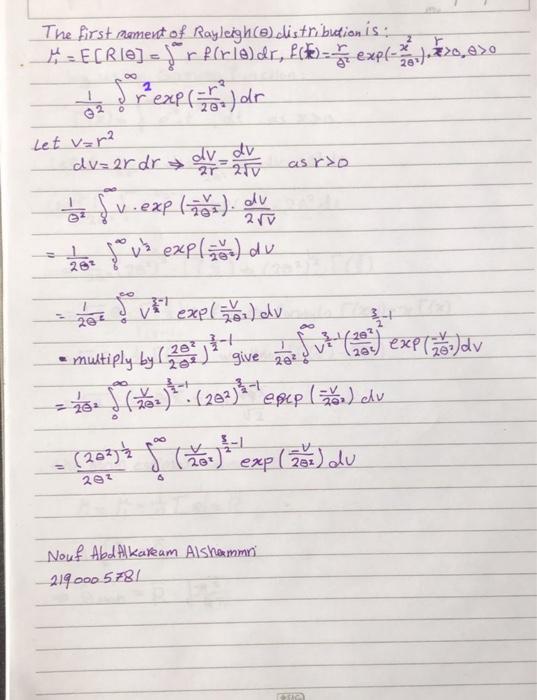 The first moment of Rayleigh(θ) distribution is:
μ' = E[R|θ] = ∫₀^∞ r f(r|θ) dr, f(r) = r/θ² exp(-x²/2θ²), r>0, θ>0
1/θ² ∫₀^∞ r² exp(-r²/2θ²) dr
Let v=r²
dv = 2r dr ⇒ dv/2r = dv/2√v as r>0
1/θ² ∫₀^∞ v · exp(-v/2θ²) · dv/2√v
= 1/2θ² ∫₀^∞ v^½ exp(-v/2θ²) dv
= 1/2θ² ∫₀^∞ v^(3/2-1) exp(-v/2θ²) dv
• multiply by (2θ²/2θ²)^(3/2-1) give 1/2θ² ∫₀^∞ v^(3/2-1) (2θ²/2θ²)^(3/2-1) exp(-v/2θ²) dv
= 1/2θ² ∫₀^∞ (v/2θ²)^(3/2-1) · (2θ²)^(3/2-1) exp(-v/2θ²) dv
= (2θ²)^½/2θ² ∫₀^∞ (v/2θ²)^(3/2-1) exp(-v/2θ²) dv
Nouf AbdAlkaream Alshammri
2190005781